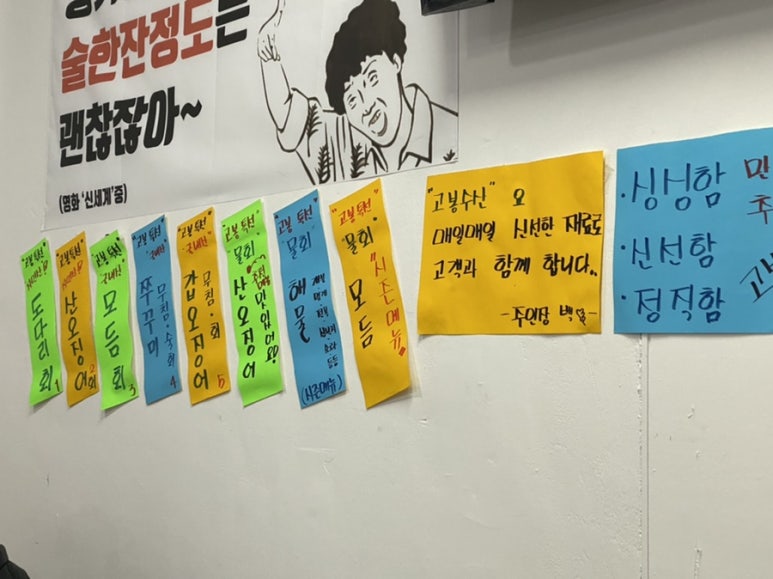 술한잔정도는
괜찮잖아~
(영화 '신세계'중)
"고봉특선"
도다리회
1
"고봉특선"
산오징어
회
2
"고봉특선"
모듬회
3
"고봉특선"
쭈꾸미
무침·숙회
4
"고봉특선"
갑오징어
무침·회
5
"고봉특선"
물회
산오징어
맛있어요!
"고봉특선"
"물회"
해물
(시즌메뉴)
"고봉특선"
"물회"
모듬
"시즌메뉴"
"고봉수산" 요
매일매일 신선한 재료로
고객과 함께 합니다..
-주인장 백-
·싱싱함
·신선함
·정직함